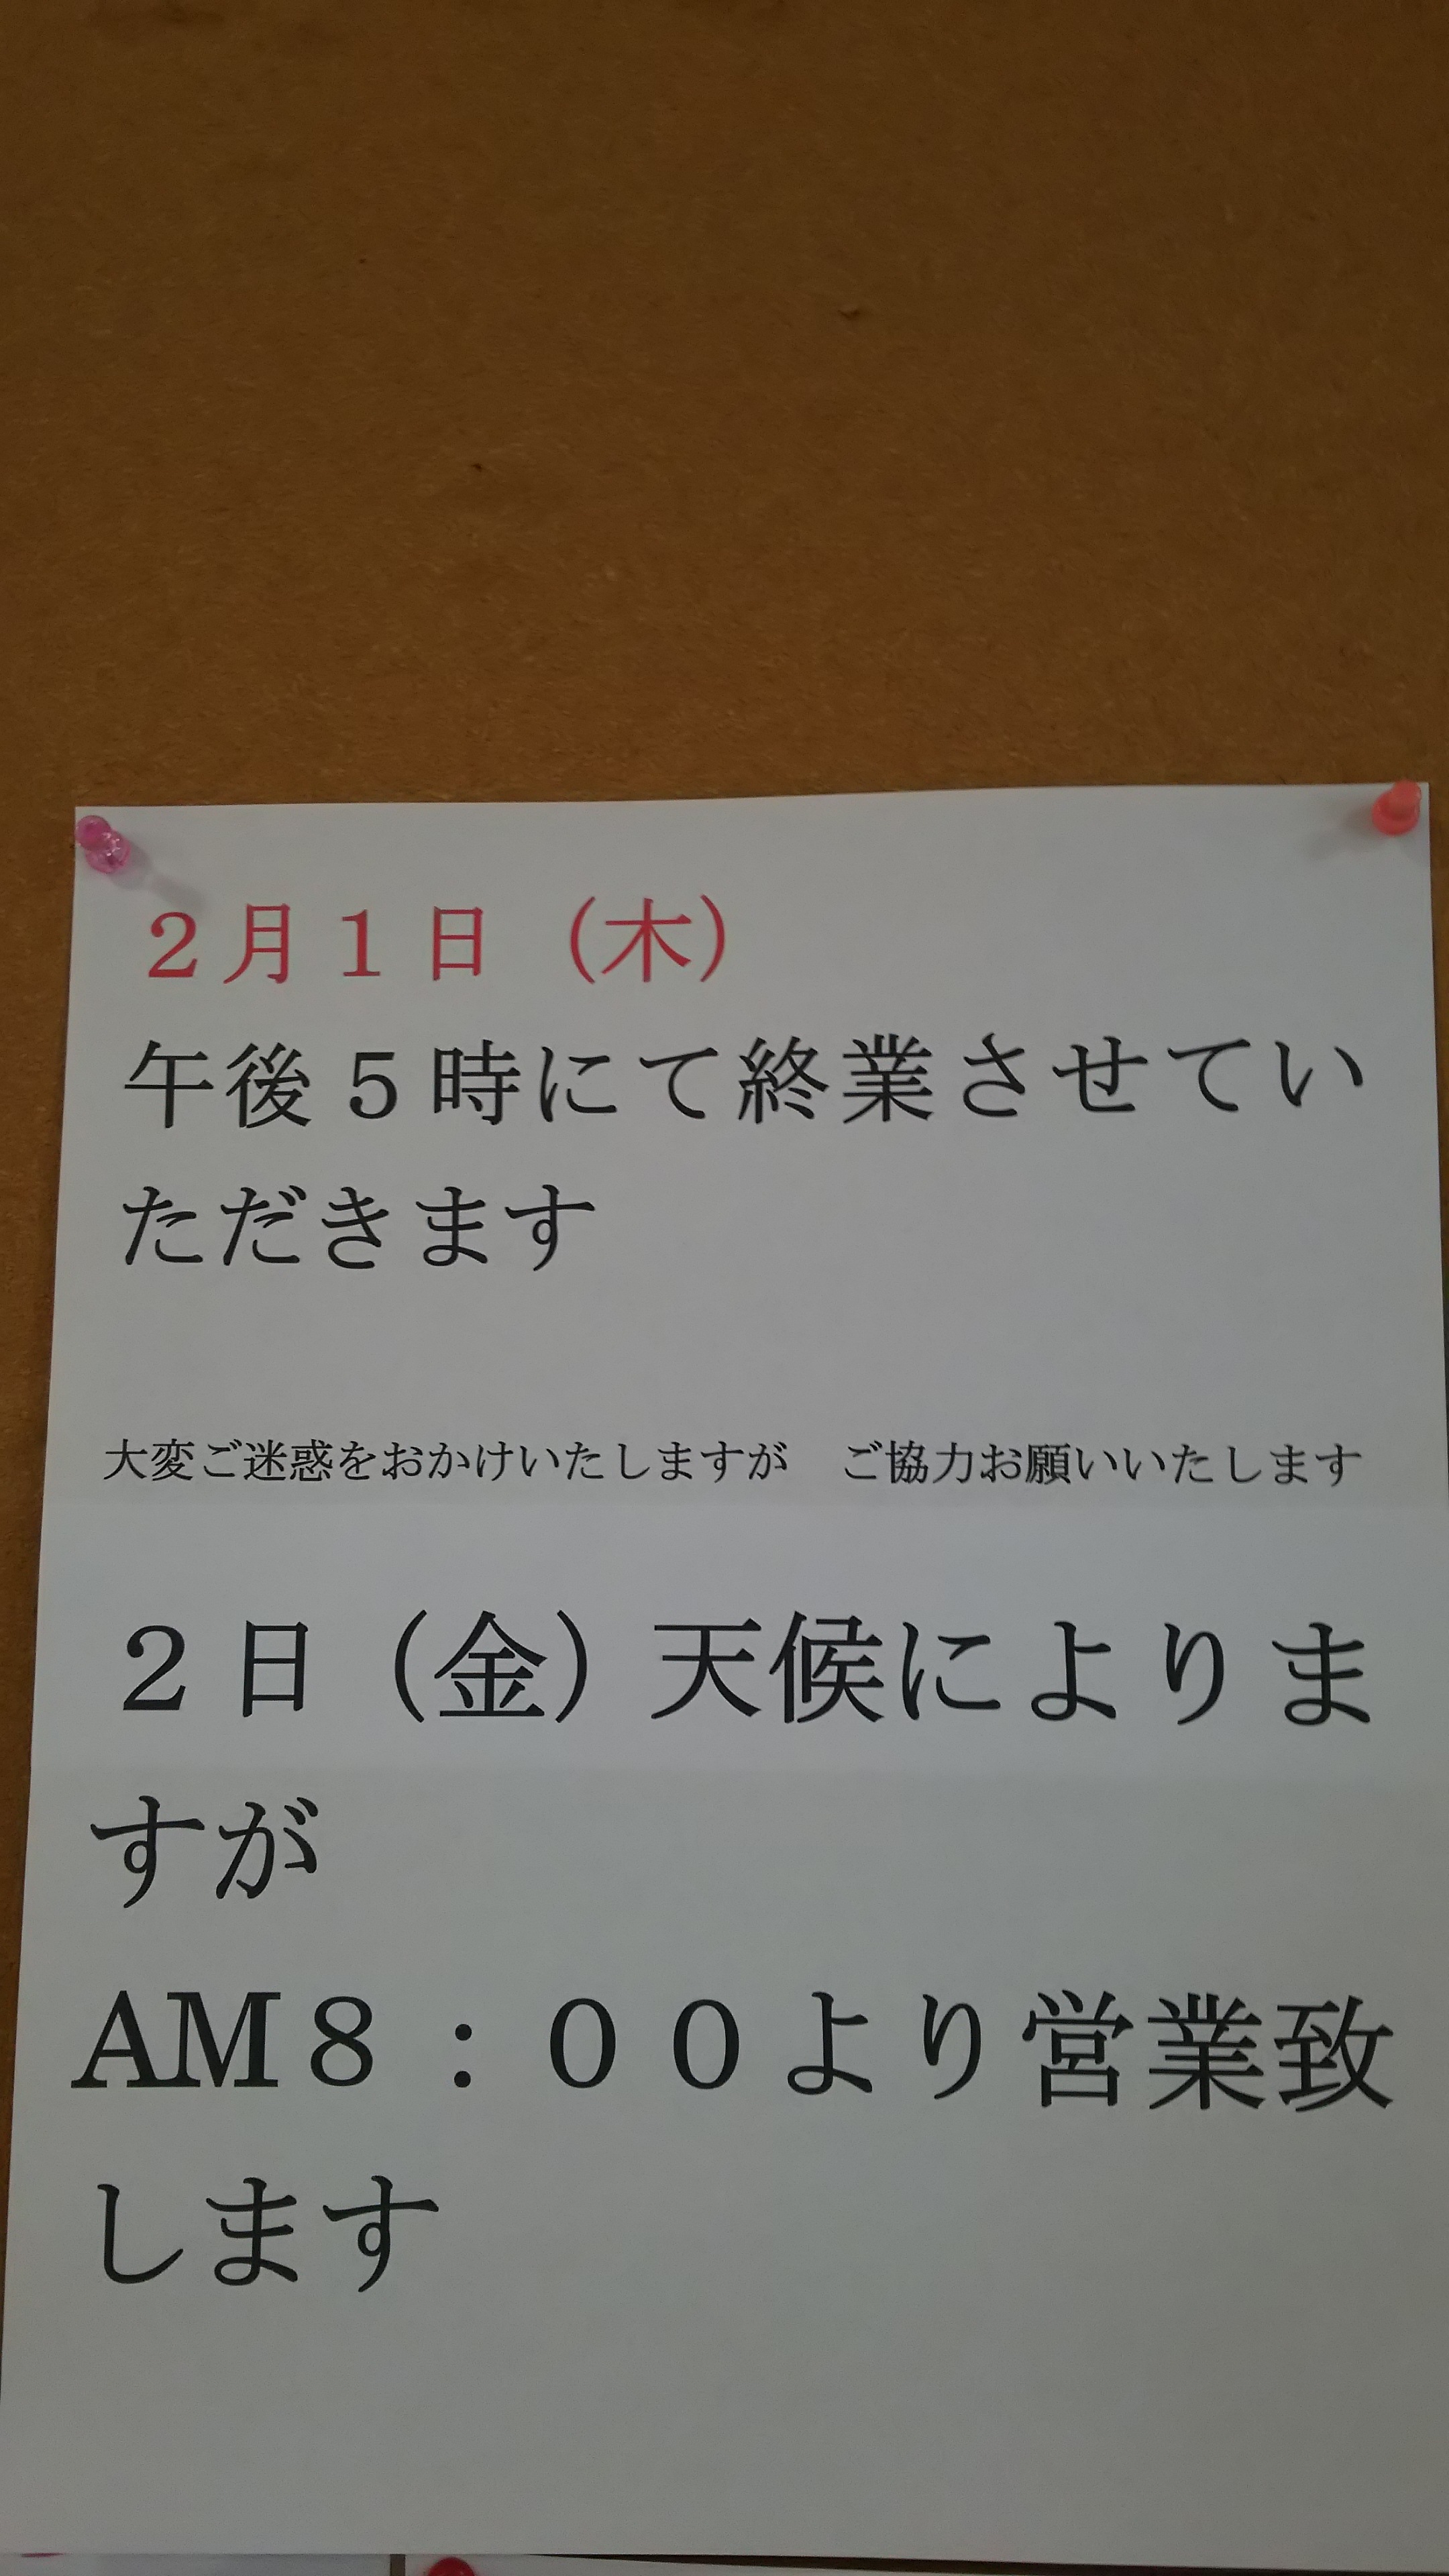 ２月１日（木）
午後５時にて終業させてい
ただきます
大変ご迷惑をおかけいたしますが　ご協力お願いいたします
２日（金）天候によりま
すが
AM８：００より営業致
します